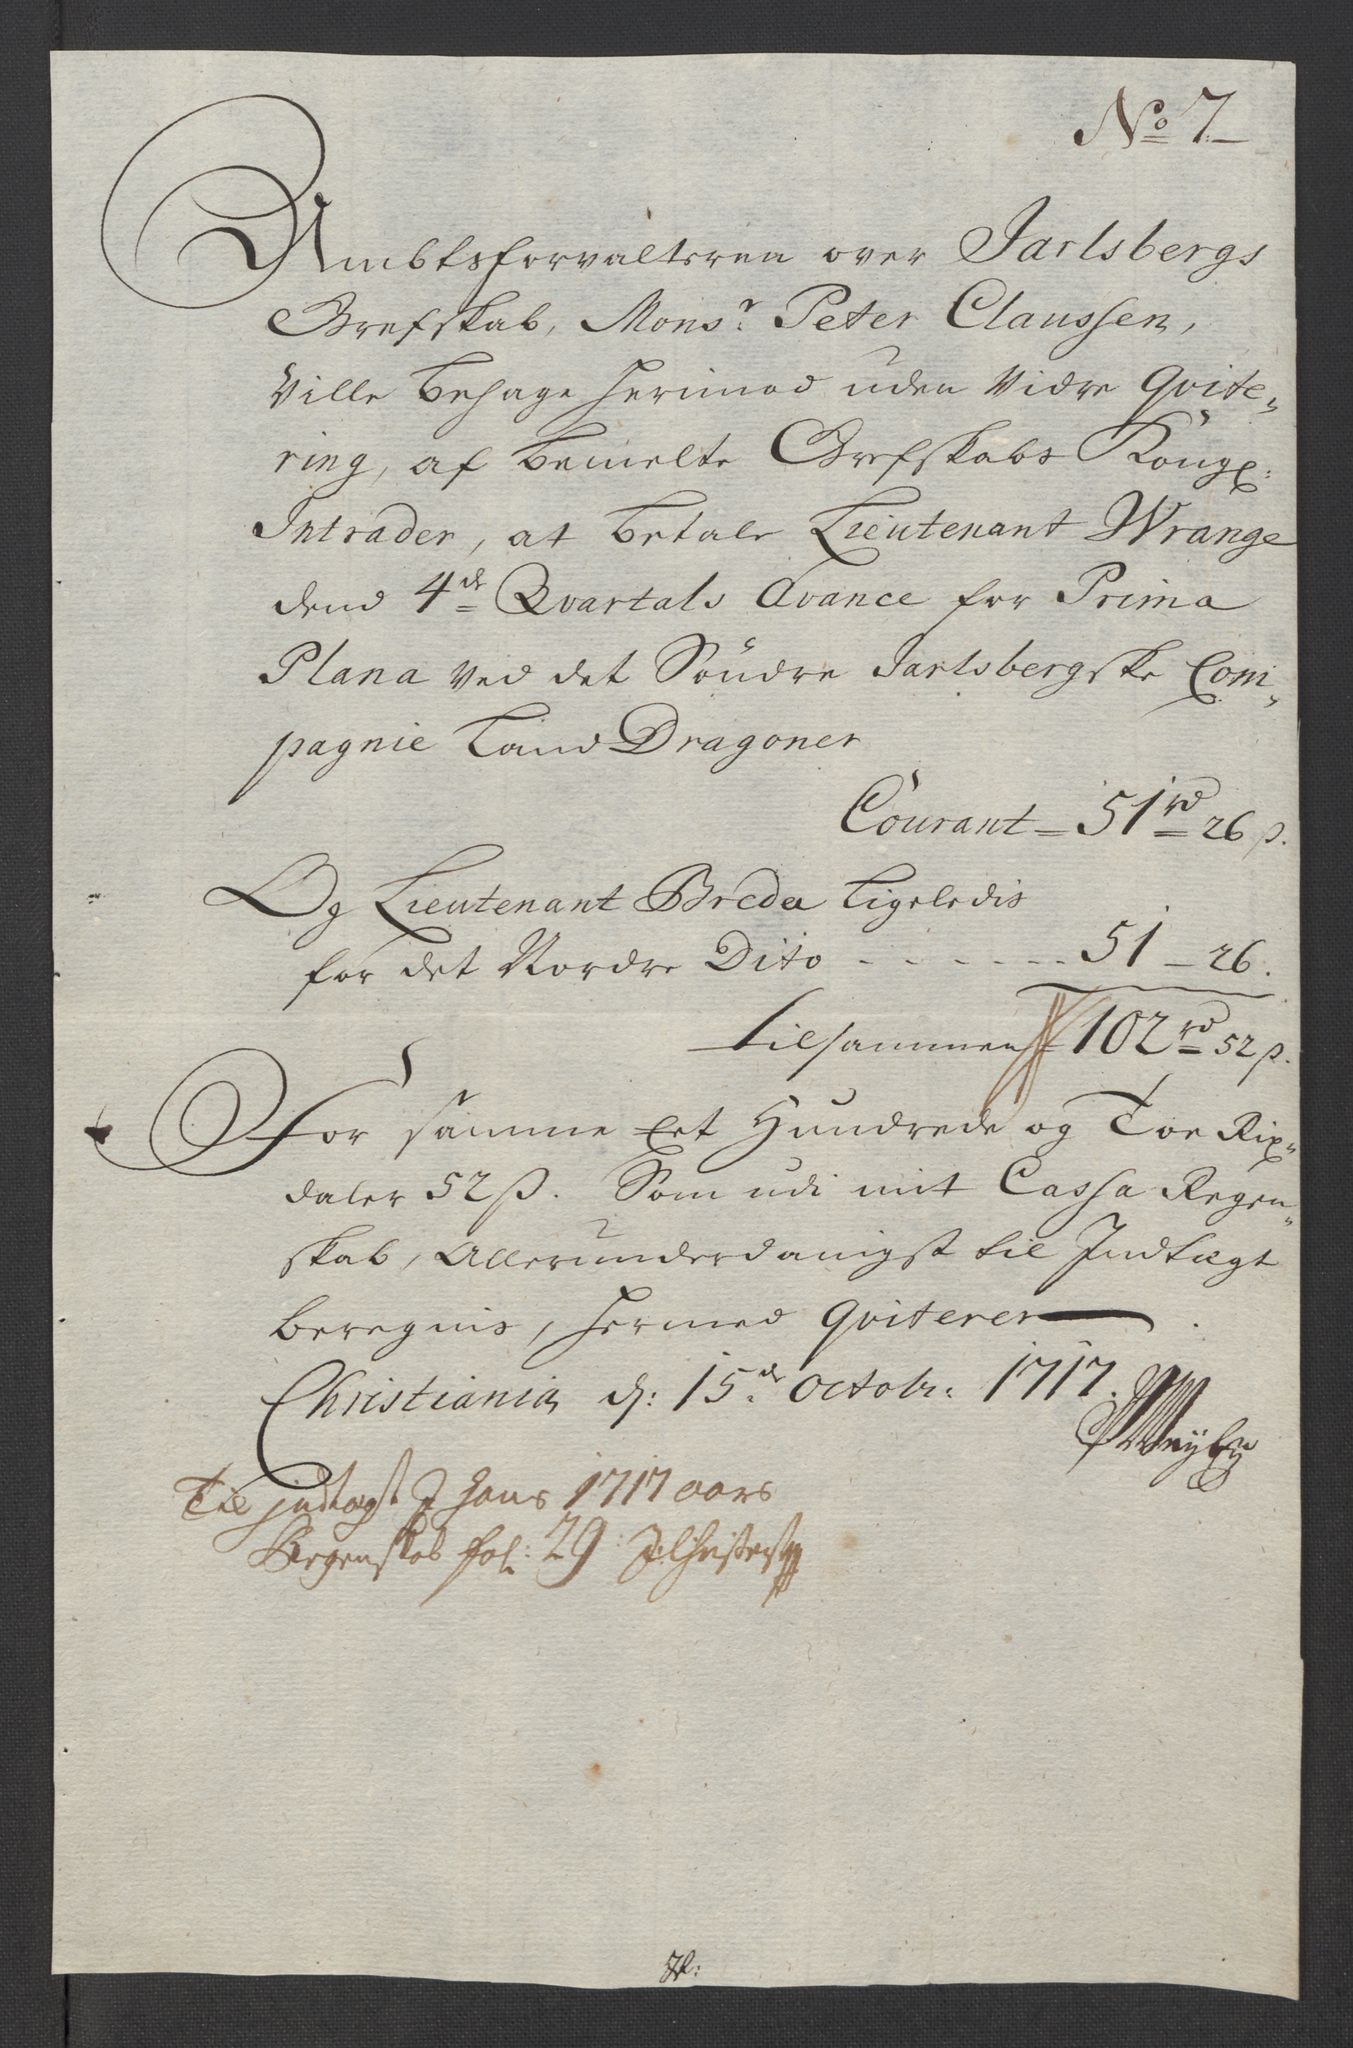 No 7
Ambtsforvalteren over Jarlsbergs
Grefskab, Monsr. Peter Claussen,
Ville behage herimod uden Vidre Qvite„
ring, af bemelte Grefskabs Kongl:
Intrader, at betale Lieutenant Wrange
dend 4de Qvartals Avance for Prima
Plana Ved det Søndre Jarlsbergske Com„
pagnie Land Dragoner
Courant – 51 rd 26 ß.
Og Lieutenant Breda ligeledis
for det Nordre Dito - - - - - - 51 – 26.
tilsammen 102 rd 52 ß.
For samme Eet Hundrede og Toe Rix„
daler 52 ß. Som udi mit Cassa Regen„
skab, Allerunderdanigst til Indtægt
beregnis, hermed Qviterer
Christiania d: 15de Octobr: 1717.
Til indtægt J hans 1717 aars
Regenskab fol: 29